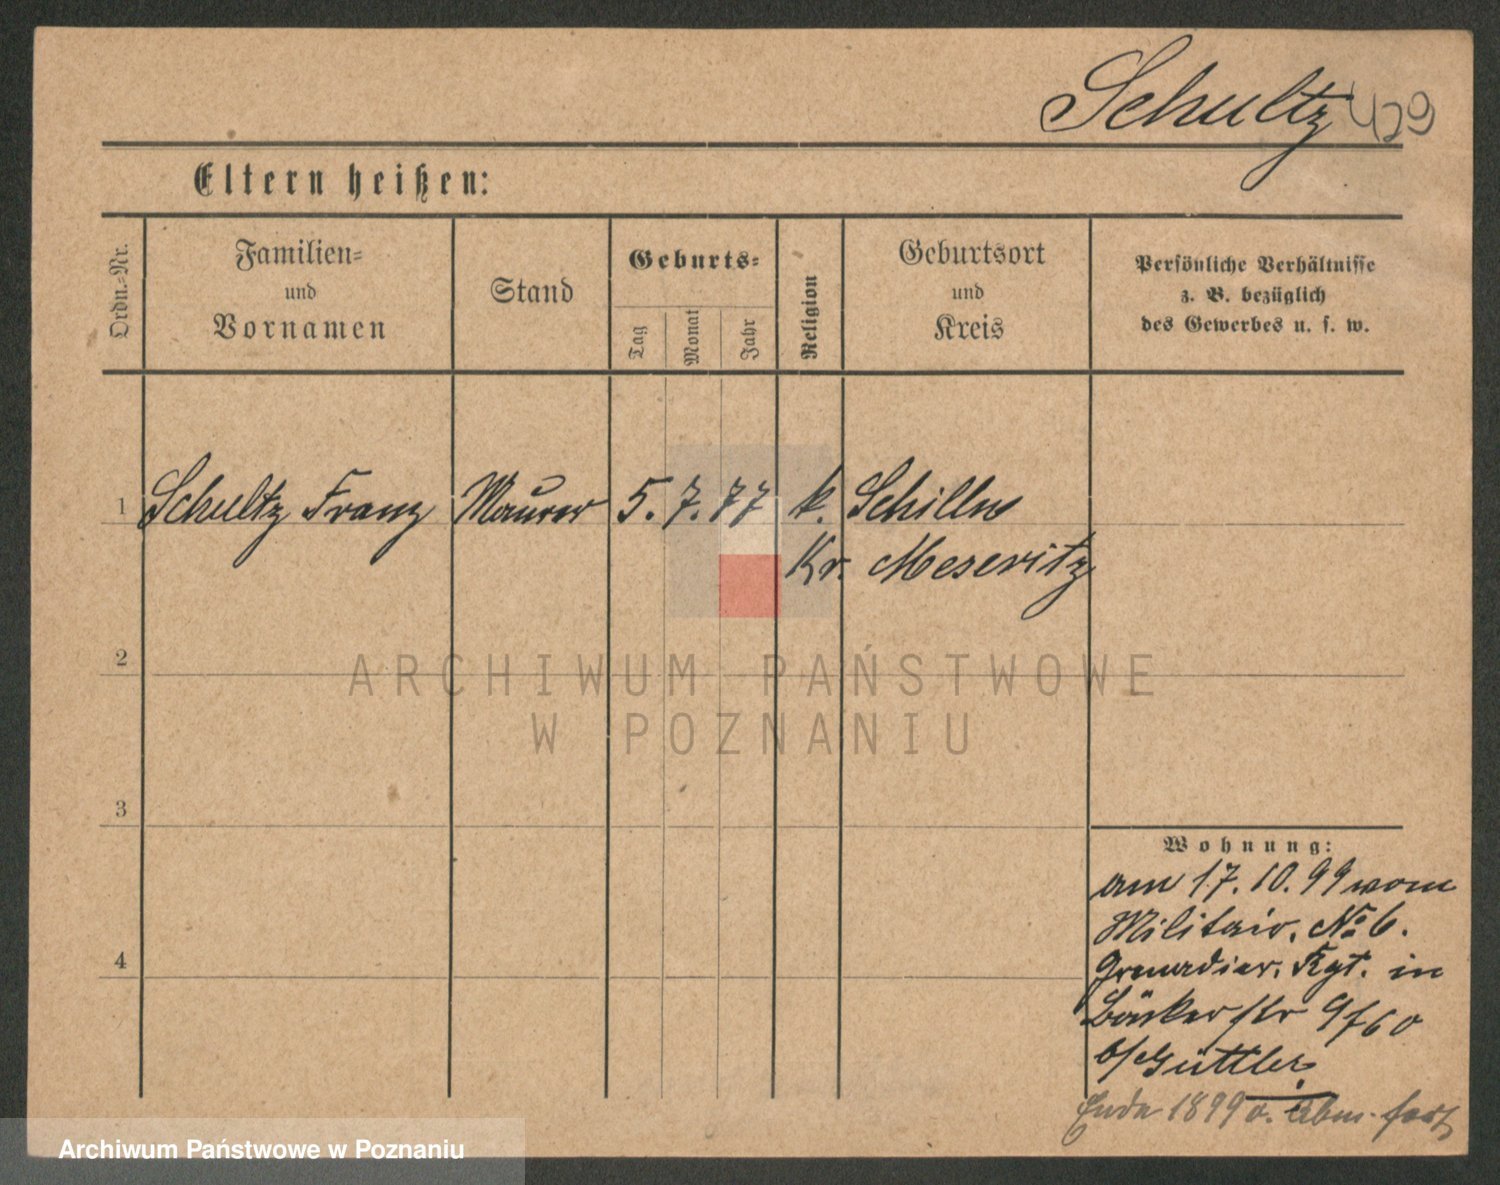 Schultz 429
Eltern heißen:
Ordn.-Nr.
Familien=
und
Vornamen
Stand
Geburts=
Tag
Monat
Jahr
Religion
Geburtsort
und
Kreis
Persönliche Verhältnisse
z. B. bezüglich
des Gewerbes u. s. w.
1 Schultz Franz Maurer 5. 7. 77 k. Schilln
Kr. Meseritz
2
ARCHIWUM PAŃSTWOWE
W POZNANIU
3
4
Wohnung:
am 17. 10. 99 vom
Militair. No 6.
Grenadier. Rgt. in
Bäckerstr 9/60
b/Güttler
Ende 1899 o. Abm. fort
Archiwum Państwowe w Poznaniu